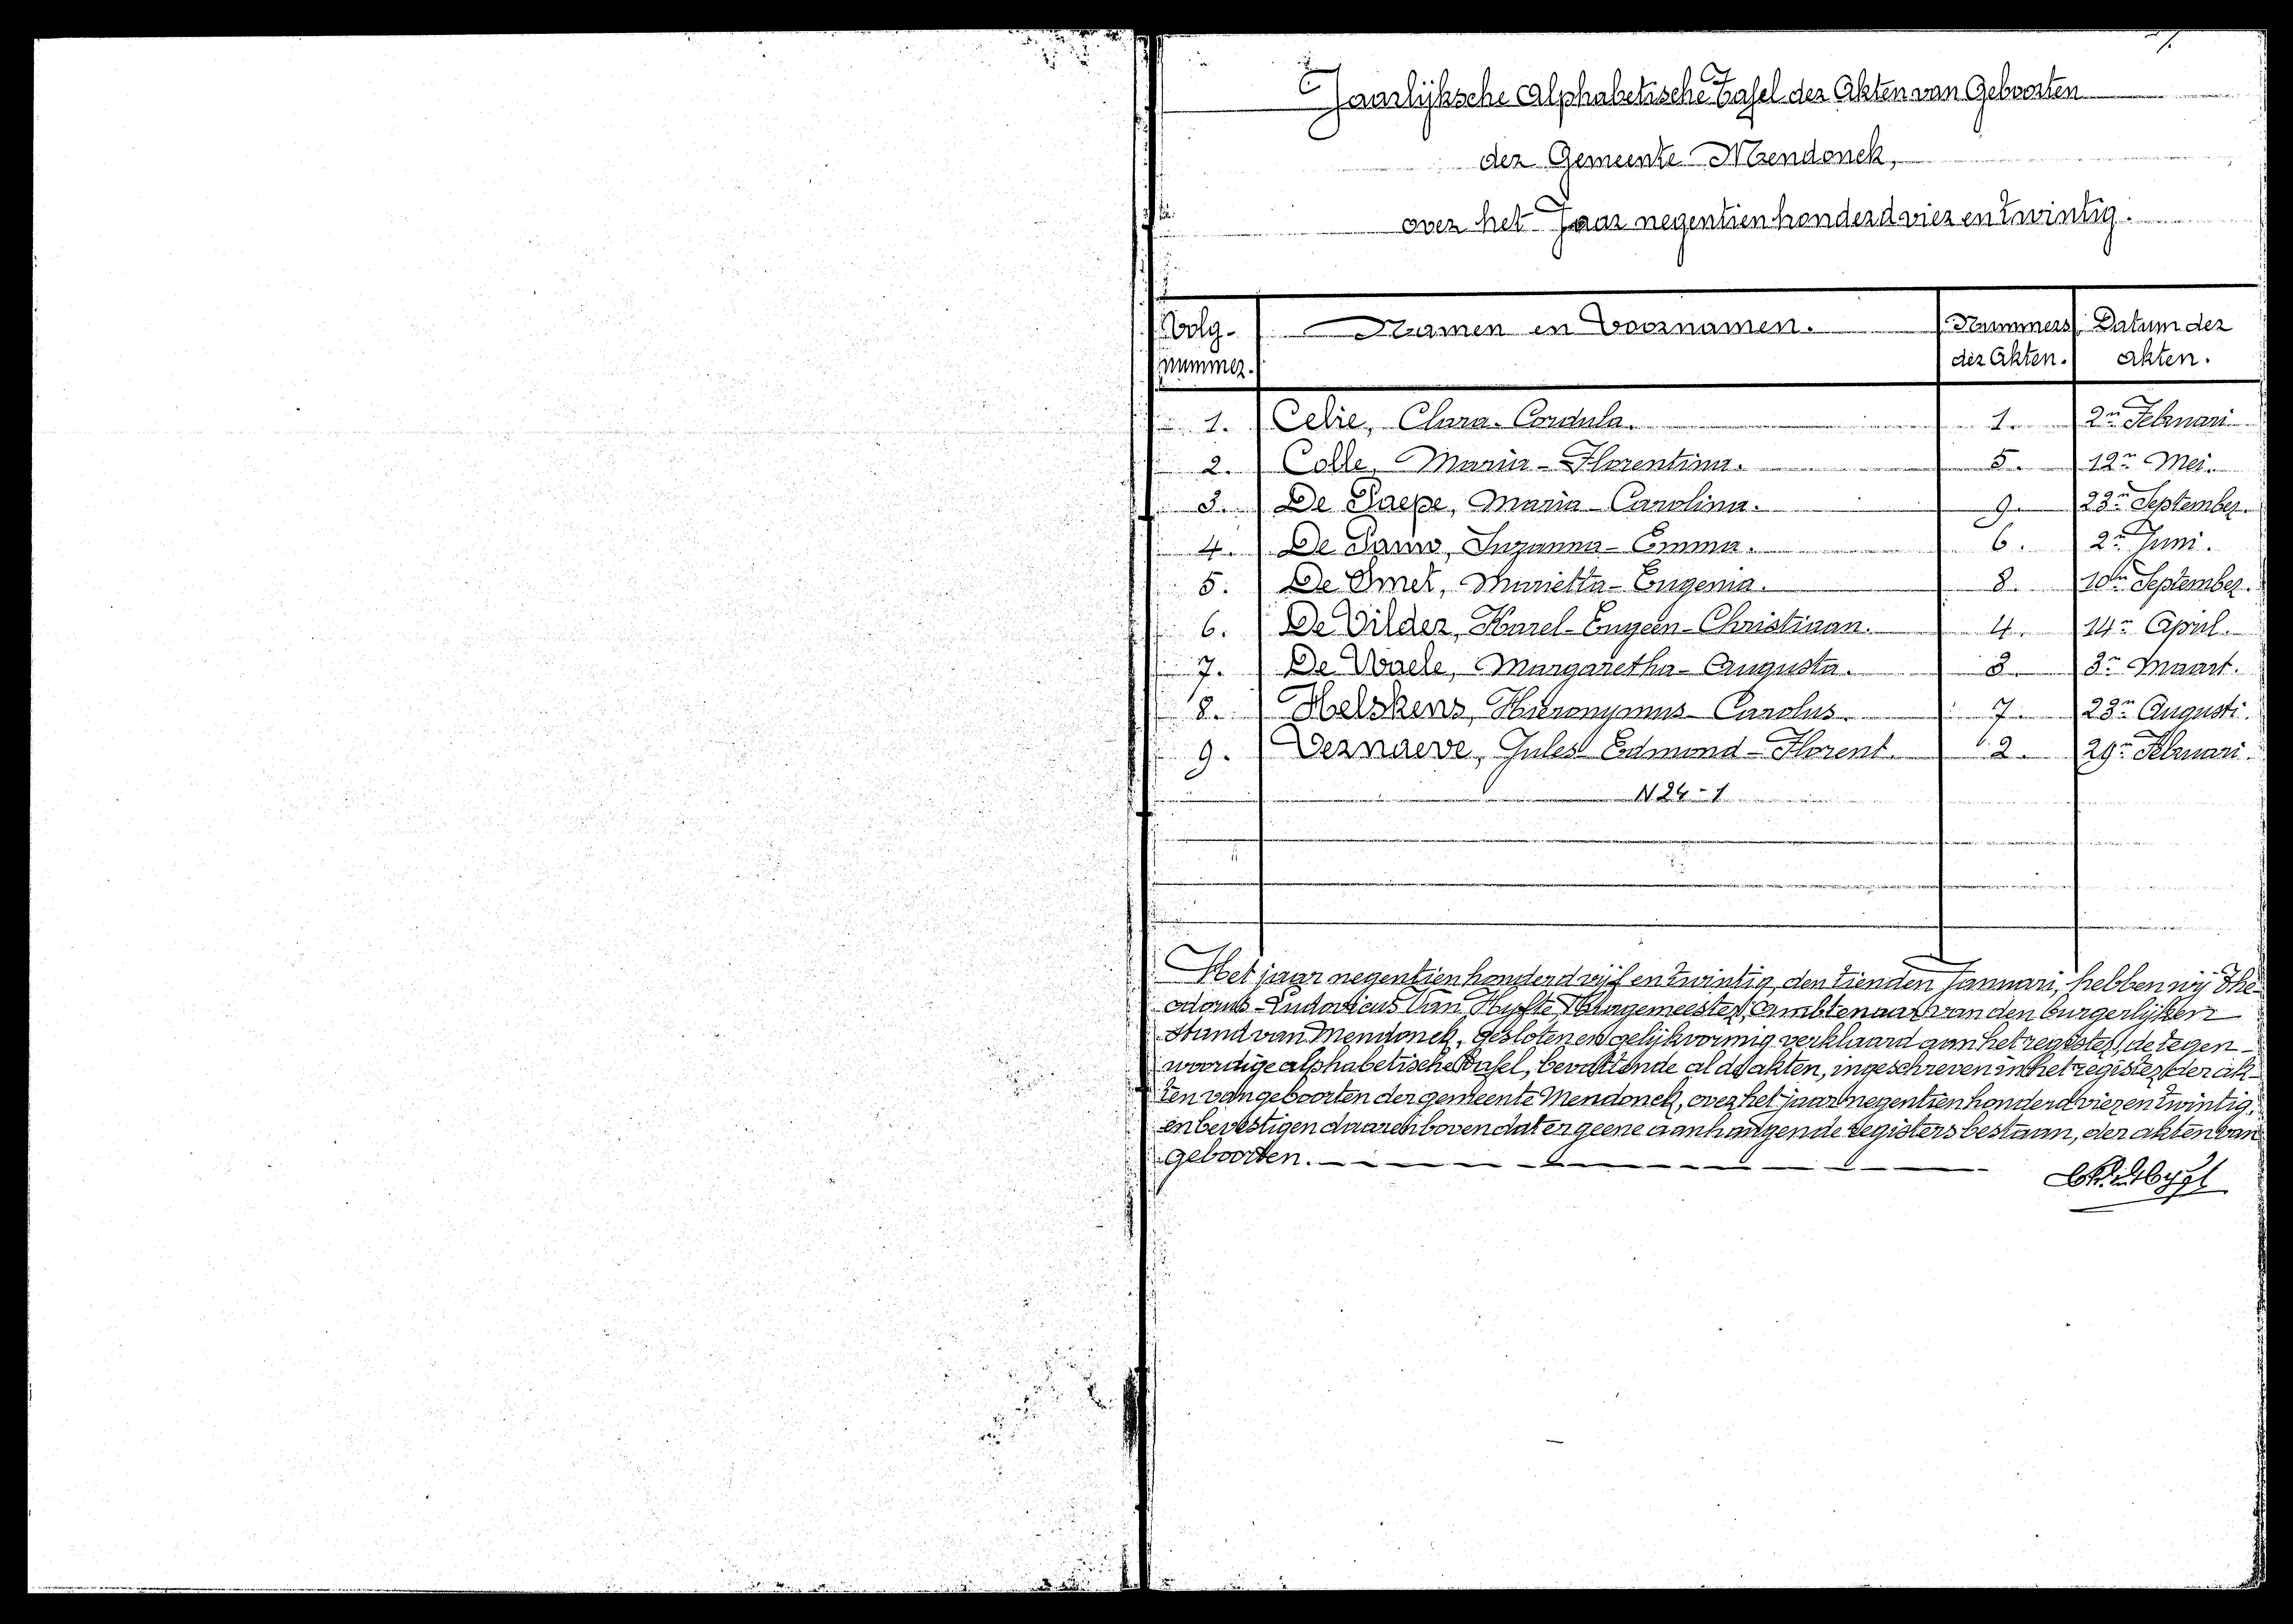 Jaarlijksche Alphabetische Tafel der Akten van Geboorten
der Gemeente Mendonck,
over het Jaar negentien honderd vier en twintig.
Volg-nummer. Naamen en Voornamen. Nummers der Akten. Datum der akten.
1. Celie, Clara-Cordula. 1. 2n Februari
2. Colle, Maria-Florentina. 5. 12n Mei.
3. De Paepe, Maria-Carolina. 9. 23n September.
4. De Pauw, Suzanna-Emma. 6. 2n Juni.
5. De Smet, Marietta-Eugenia. 8. 10n September.
6. De Vilder, Karel-Eugeen-Christiaan. 4. 14n April.
7. De Waele, Margaretha-Augusta. 3. 3n Maart.
8. Helskens, Hieronymus-Carolus. 7. 23n Augusti.
9. Vernaeve, Jules Edmond-Florent. 2. 29n Februari.
N 24-1
Het jaar negentien honderd vijf en twintig, den tienden Januari, hebben wij The-
odorus-Ludovicus Van Hyfte, Burgemeester, Ambtenaar van den burgerlijken
stand van Mendonck, gesloten en gelijkvormig verklaard aan het register, de tegen-
woordige alphabetische Tafel, bevattende al de akten, ingeschreven in het register der ak-
ten van geboorten der gemeente Mendonck, over het jaar negentien honderd vier en twintig,
en bevestigen daarenboven dat er geene aanhangende registers bestaan, der akten van
geboorten.